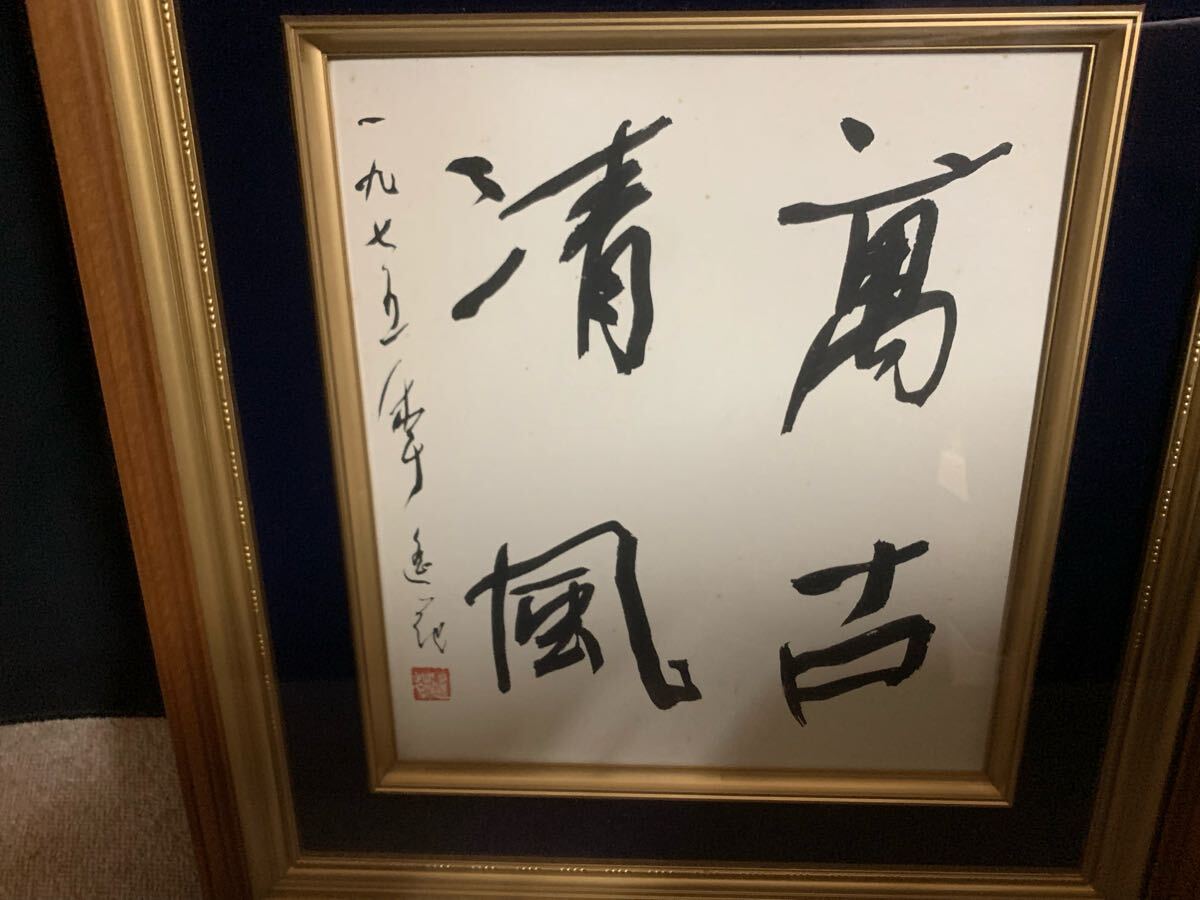 萬古
清風
一九七五年